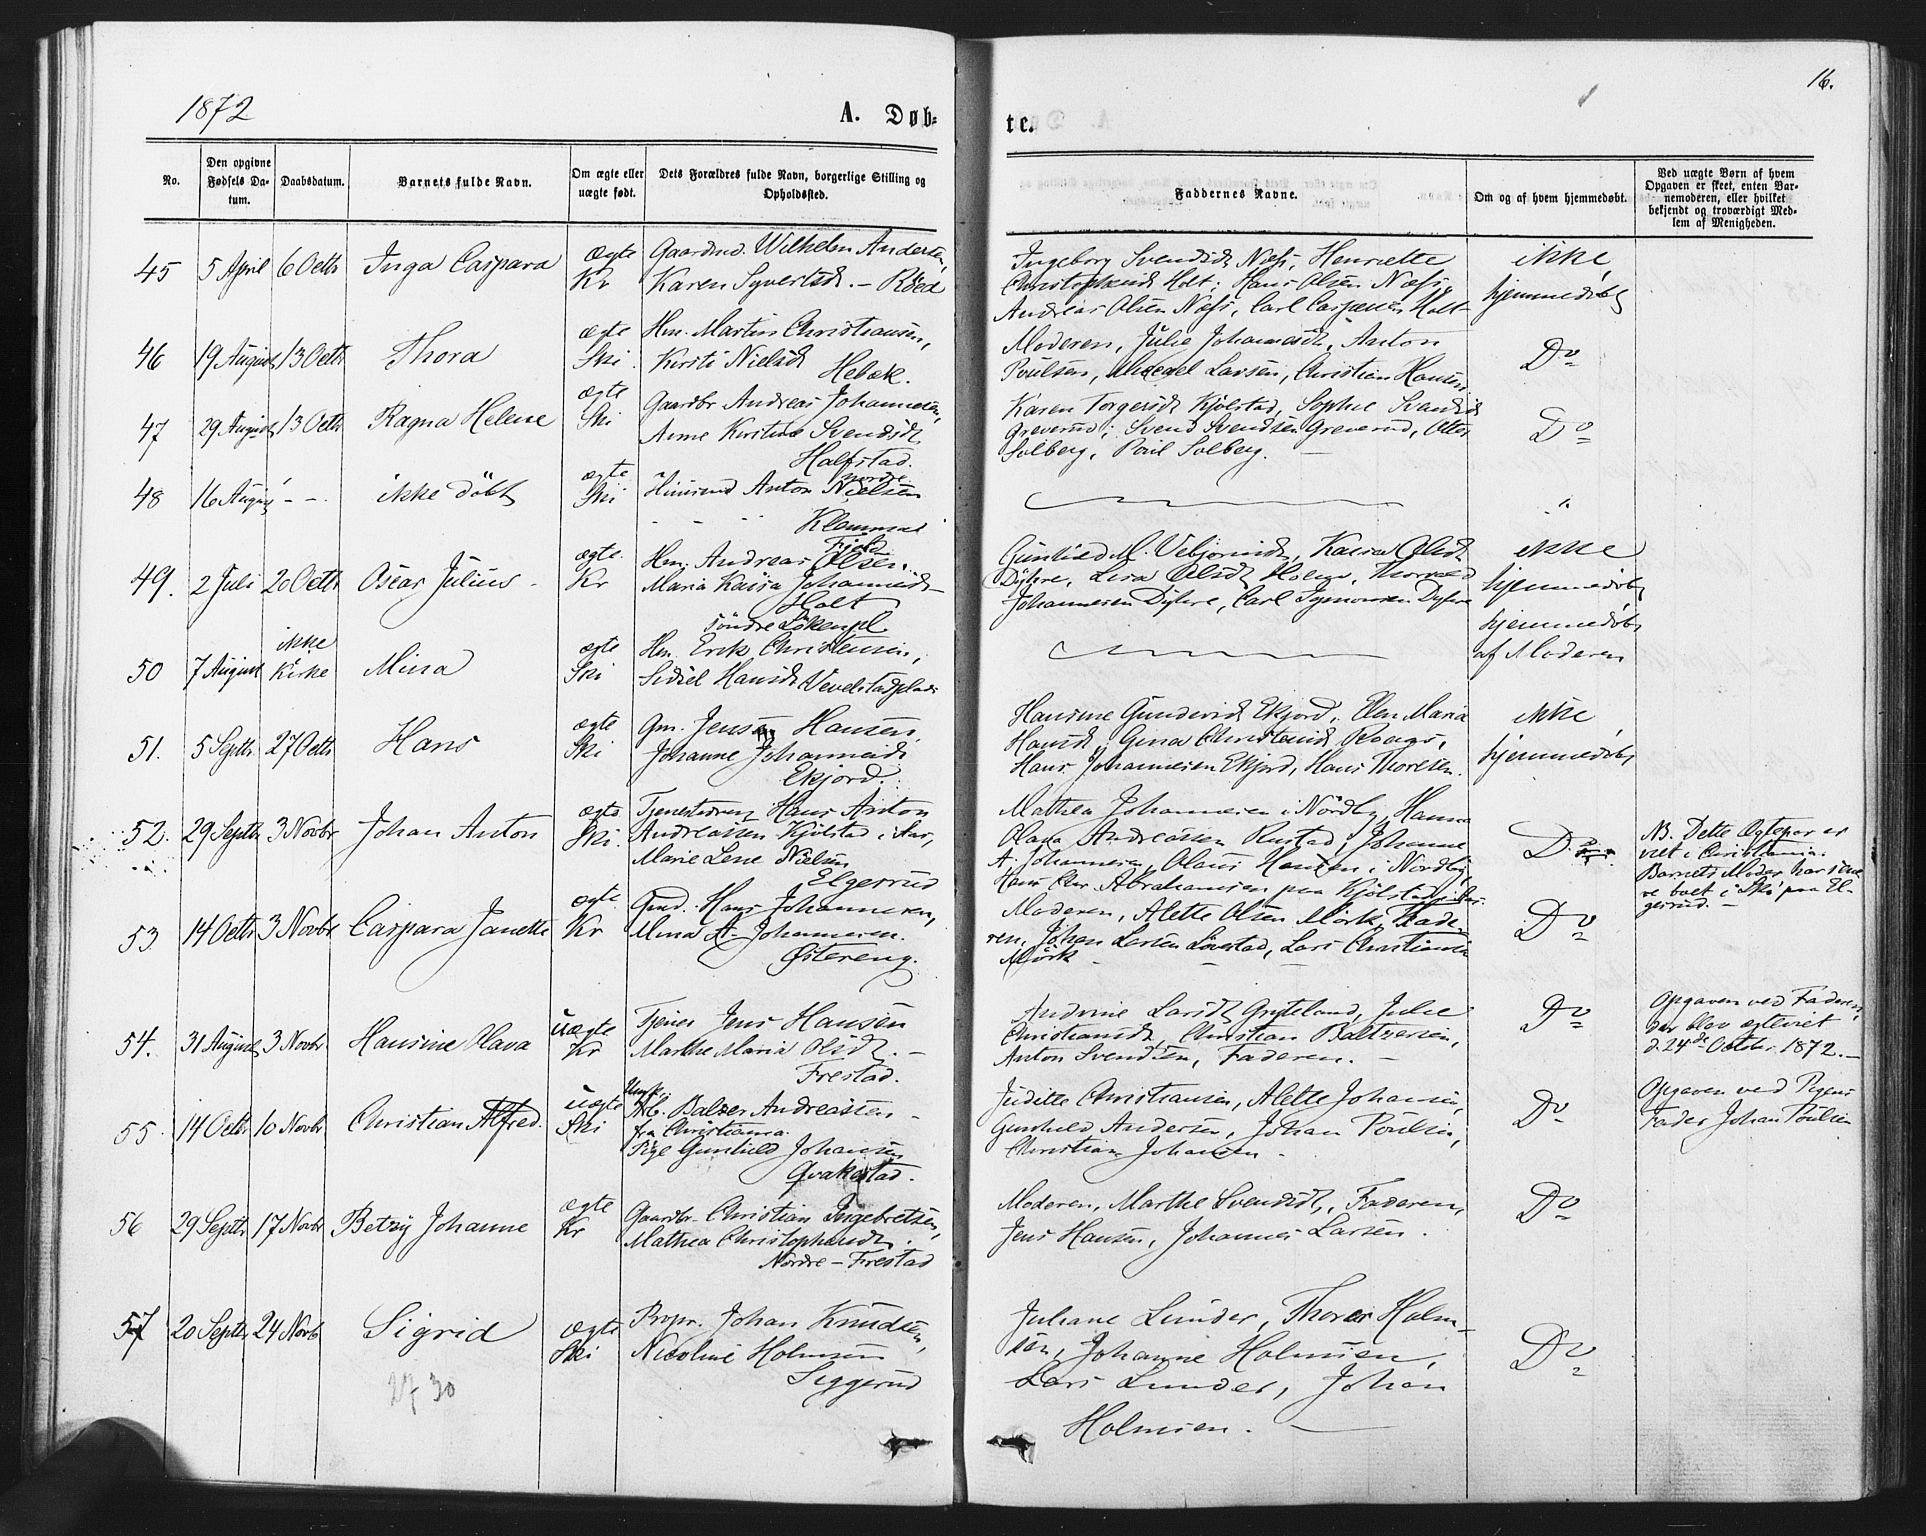 16.
1872
A. Døb-
te.
No.
Den opgivne Fødsels Da-tum.
Daabsdatum.
Barnets fulde Navn.
Om ægte eller uægte født.
Dets Forældres fulde Navn, borgerlige Stilling og Opholdssted.
Faddernes Navne.
Om og af hvem hjemmedøbt.
Ved uægte Børn af hvem Opgaven er skeet, enten Bar-nemoderen, eller hvilket bekjendt og troværdigt Med-lem af Menigheden.
45 5 April 6 Octb Inga Caspara ægte Kr
Gaardmd. Wilhelm Andersen,
Karen Syvertsd. - Röed
Ingeborg Svendsd. Næss, Henriette
Christophersd Holt; Hans Olsen Næss,
Andreas Olsen Næss, Carl Caspersen Holt
ikke
hjemmedöbt
46 19 August 13 Octb Thora ægte Ski
Hm. Martin Christiansen,
Kirsti Nielsd
Hebæk.
Moderen, Julie Johannesd, Anton
Poulsen, Larsen, Christian Hansen
Do
47 29 August 13 Octb Ragna Helene ægte Ski
Gaardbr Andreas Johannesen,
Anne Kirstine Svendsd
Halfstad.
Karen Torgersd Kjölstad, Sophie Svendsd
Greverud; Svend Svendsen Greverud, Otter
Solberg, Poul Solberg. -
Do
48 16 August - - ikke döbt ægte Ski
Huusmd Anton Nielsen
nordre
- - - Klemmes
"
49. 2 Juli 20 Octb Oscar Julius - ægte Kr
Field
Hm. Andreas Olsen
Maria Kaisa Johannesd -
Holt
Gunhild M. Vebjørnsd, Kaisa Olsd
Dÿhre, Lisa Olsd Holm, Thorvald
Johannesen Dÿhre, Carl Symonsen Dyhre
ikke
hjemmedöbt
50 7 August ikke i Kirke Mina ægte Ski
söndre Lökenpl
Hm Erik Christensen,
Sidsel Hansd Vevelstadplads
hjemmedöbt
af Moderen
51. 5 Septb 27 Octb Hans ægte Ski
Gm. Jens Hansen,
Johanne Johannesd
Ekjord.
Hansine Gundersd Ekjord, Elen Maria
Hansd, Gina Christensd Kaags,
Hans Johannesen Ekjord, Hans Thoresen.
ikke
hjemmedöbt
52. 29 Septb 3 Novbr Johan Anton ægte Ski.
Tjenestedreng Hans Anton
Andreassen Kjölstad i Aas,
Marie Lene Nielsen
Elgerrud
Mathea Johannesen i Nordby, Hanna
Olava Andreassen Rustad, Johanne
A. Johannesen, Olaus Hansen i Nordby,
Hans Chr. Abrahamsen paa Kjölstad i Aas.
Do
NB. Dette Ægtepar er
viet i Christiania.
Barnets Moder har sene
re boet i Ski paa El-
gerrud. -
53 14 Octb 3 Novbr Caspara Janette ægte Kr
Gmd. Hans Johannesen,
Mina A. Johannesen.
Østereng.
Moderen, Alette Olsen Mörk, Fade-
ren, Johan Larsen Lövestad, Lars Christiansen
Mörk -
Do
54. 31 August 3 Novbr. Hansine Olava uægte Kr
Tjener Jens Hansen
Marthe Maria Olsd. -
Frestad.
Andrine Larsd Gryteland, Julie
Christiansd, Christian Baltzersen,
Anton Svendsen, Faderen. -
Do
Opgaven ved Faderen,
der blev ægteviet
d. 24de October 1872. -
55. 14 Octb 10 Novbr. Christian Alfred. uægte Ski
Ungk.
Balzer Andreassen -
fra Christiania.
Pige Gunhild Johansen
Qvakestad.
Juditte Christiansen, Alette Johansen,
Gunhild Andersen, Johan Poulsen,
Christian Johansen -
Do
Opgaven ved Pigens
Fader Johan Poulsen
56 29 Septb 17 Novbr Betzÿ Johanne ægte Kr
Gaardbr. Christian Ingebretsen,
Mathea Christophersd.
Nordre - Frestad
Moderen, Marthe Svendsd., Faderen,
Jens Hansen, Johannes Larsen.
Do
57 20 Septb 24 Novb Sigrid ægte Ski
Propr. Johan Knudsen,
Nicoline Holmsen
Siggerud
Juliane Lunder, Thora Holm-
sen, Johanne Holmsen,
Lars Lunder, Johan
Holmsen. -
Do
27 30